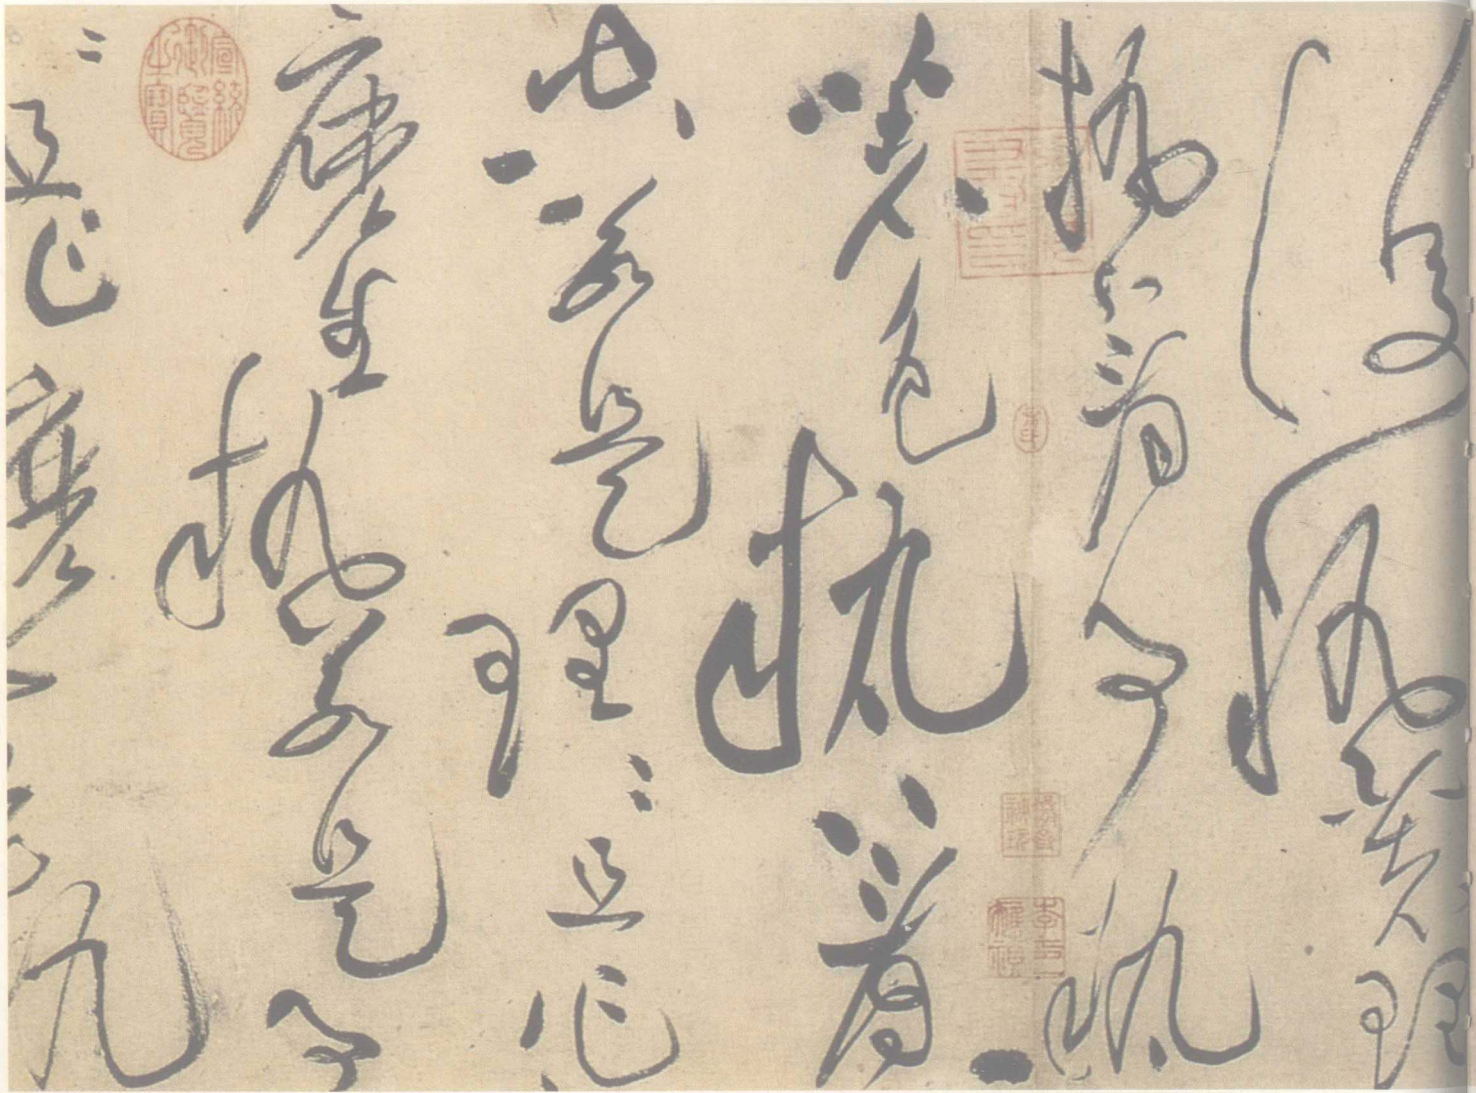 復執著理
執著事執
著色執著
空若是理〻且作
麼生執若是事
〻且作麼生執